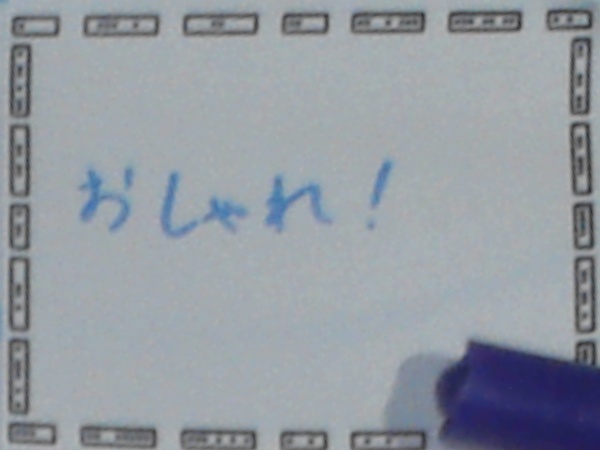 おしゃれ!